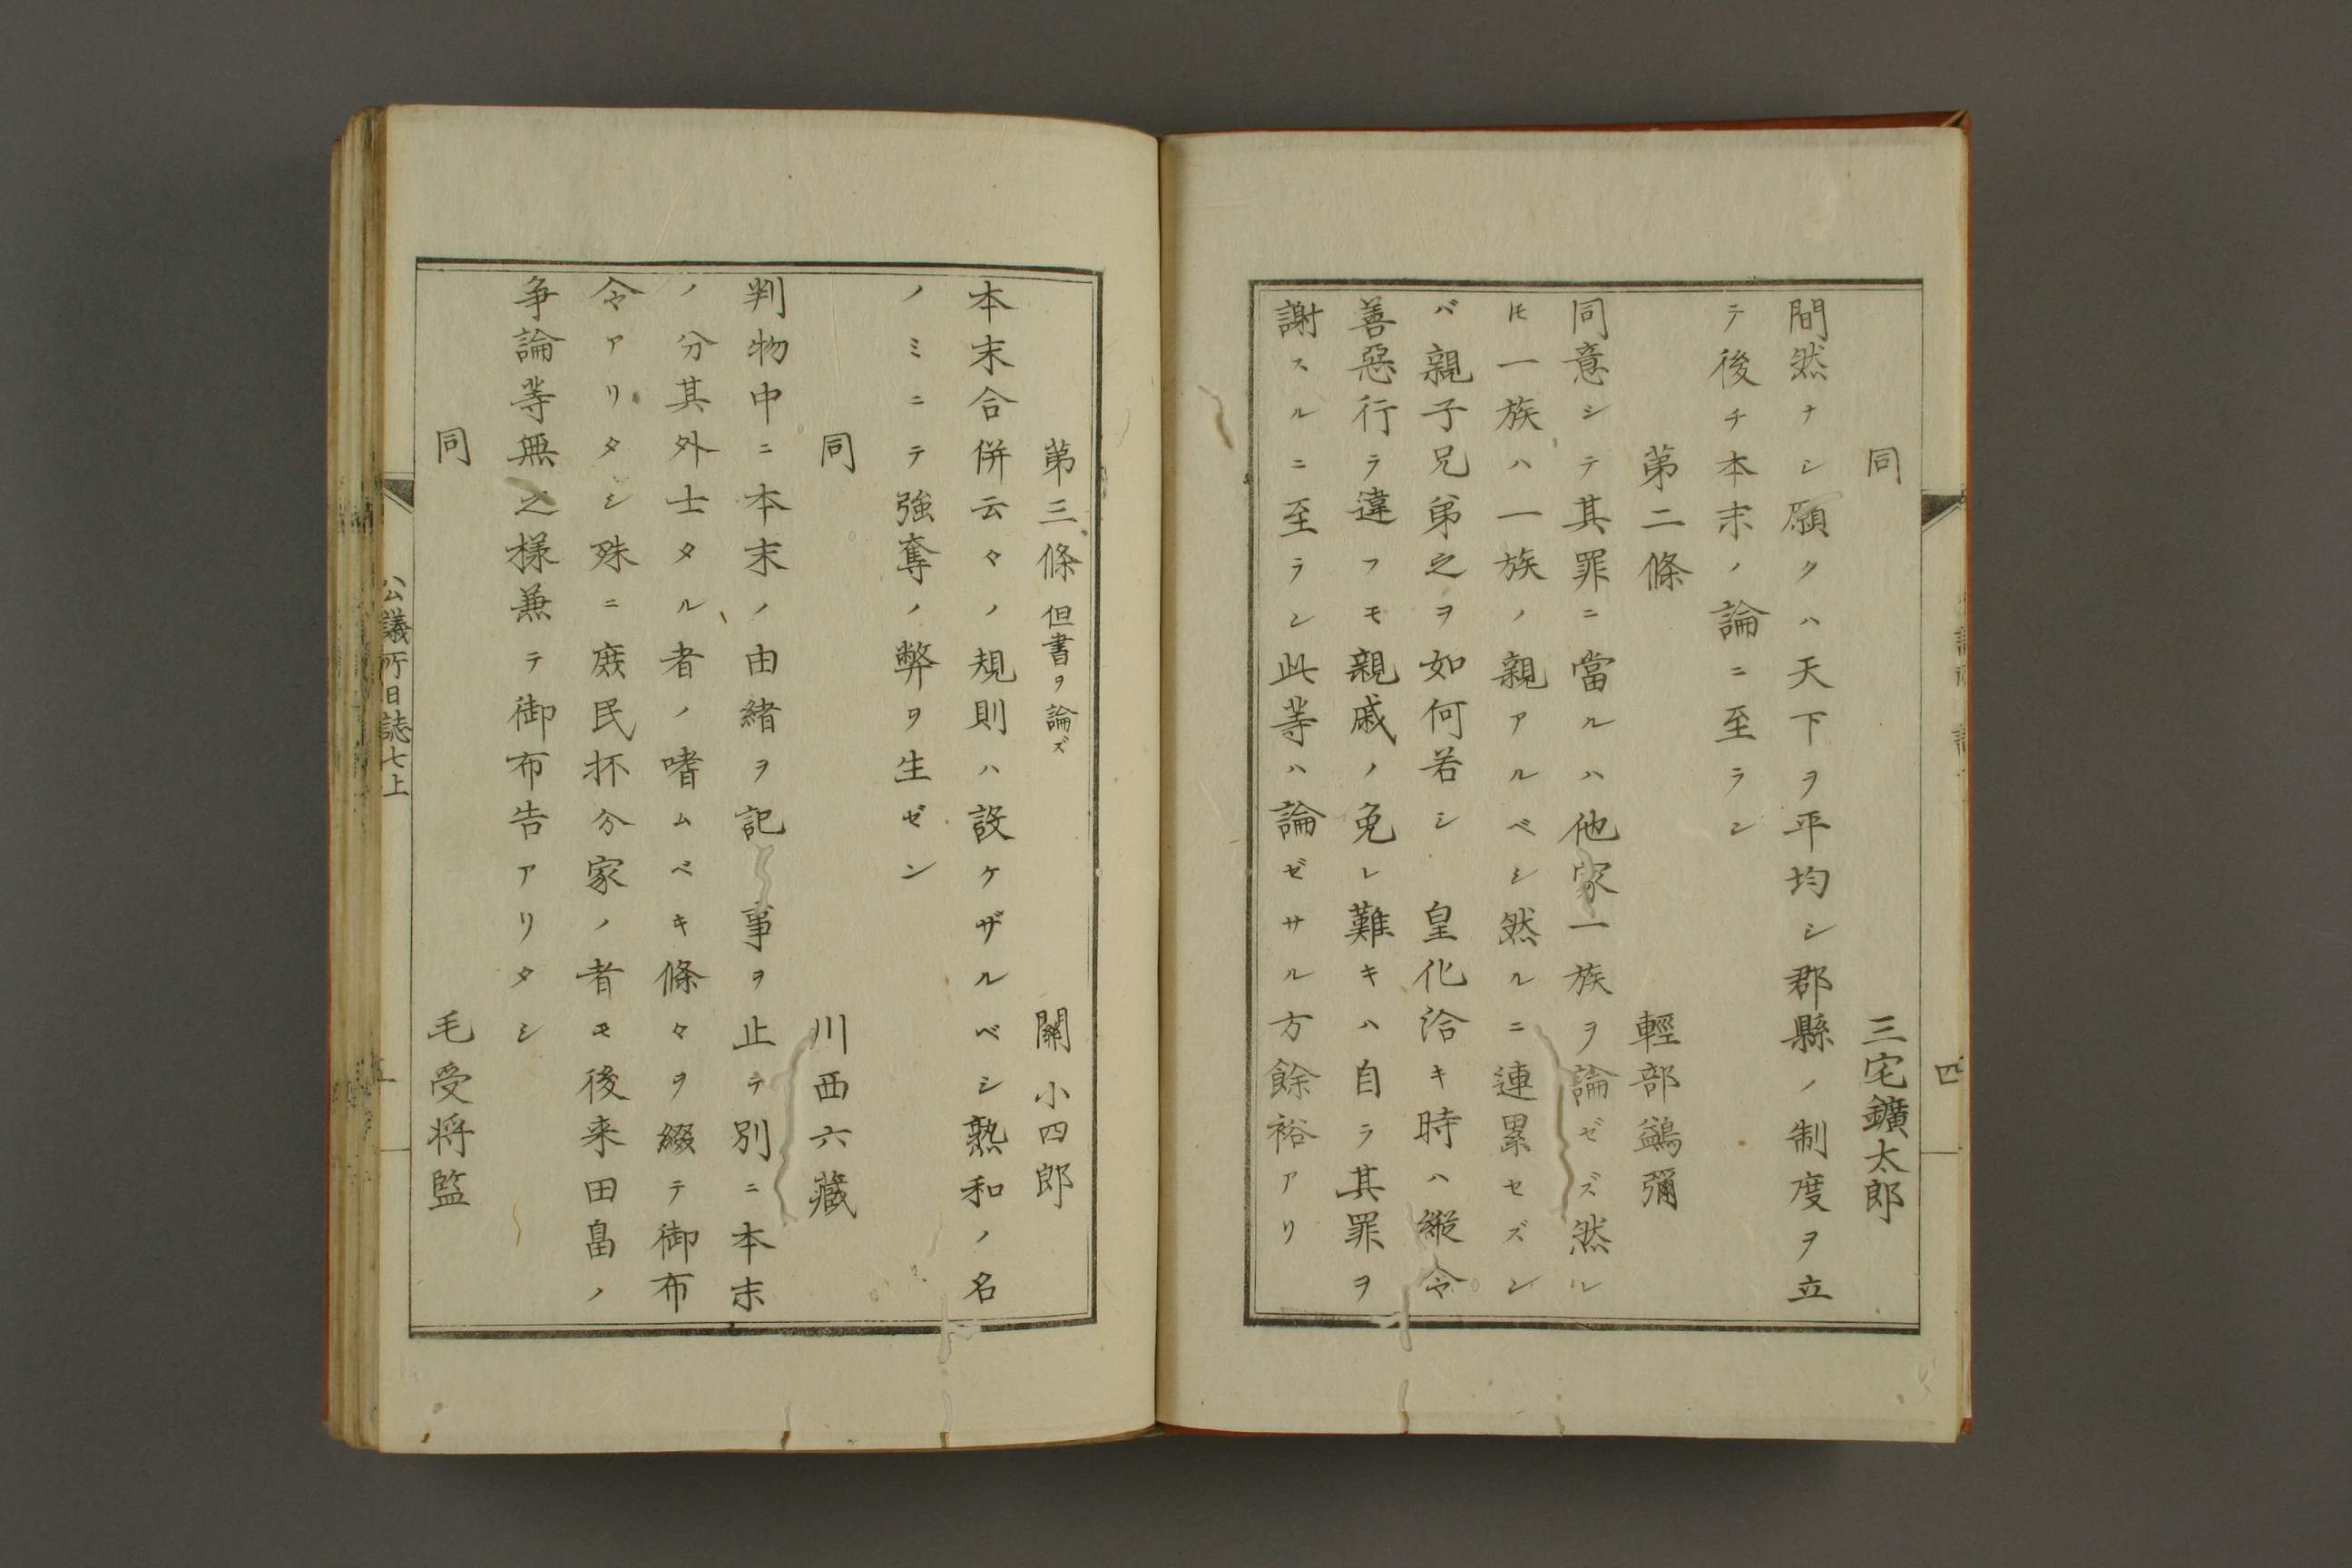 同 三宅鑛太郎
間然ナシ願クハ天下ヲ平均シ郡縣ノ制度ヲ立
テ後チ本末ノ論ニ至ラン
第二條 輕部鷁彌
同意シテ其罪ニ當ルハ他家一族ヲ論ゼズ然ル
𪜈一族ハ一族ノ親アルベシ然ルニ連累セズン
バ親子兄弟之ヲ如何若シ 皇化洽キ時ハ縱令
善惡行ヲ違フモ親戚ノ免レ難キハ自ラ其罪ヲ
謝スルニ至ラン此等ハ論ゼサル方餘裕アリ
四
第三條 但書ヲ論ズ 關小四郎
本末合併云々ノ規則ハ設ケザルベシ熟和ノ名
ノミニテ強奪ノ弊ヲ生ゼン
同 川西六藏
判物中ニ本末ノ由緒ヲ記 事ヲ止テ別ニ本末
ノ分其外士タル者ノ嗜ムベキ條々ヲ綴テ御布
令アリタシ殊ニ庶民抔分家ノ者モ後来田畠ノ
争論等無之様兼テ御布告アリタシ
同 毛受将監
公議所日誌七上